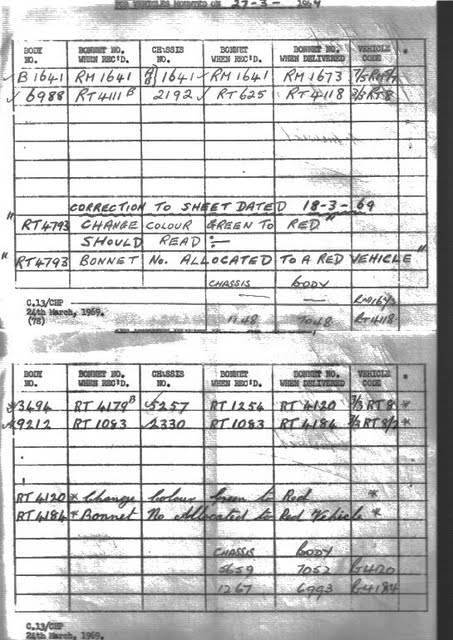 FOR VEHICLES MOUNTED ON 27-3- 1969
BODY NO. BONNET NO. WHEN REC'D. CHASSIS NO. BONNET WHEN REC'D. BONNET NO. WHEN DELIVERED VEHICLE CODE
✓ B1641 RM1641 1641 ✓ RM1641 RM1673
✓ 6988 RT4111 B 2192 ✓ RT625 RT4118 3/3 RT8
CORRECTION TO SHEET DATED 18-3-69
" RT4793 CHANGE COLOUR GREEN TO RED "
SHOULD READ :—
" RT4793 BONNET No. ALLOCATED TO A RED VEHICLE "
CHASSIS BODY
— — RM1673
1148 7048 RT4118
C.13/CHP
24th March, 1969.
(78)
BODY NO. BONNET NO. WHEN REC'D. CHASSIS NO. BONNET WHEN REC'D. BONNET NO. WHEN DELIVERED VEHICLE CODE
✓3494 RT4179 B ✓5257 RT1254 RT4120 3/3 RT8 *
✓9212 RT1083 ✓2330 RT1083 RT4184 3/3 RT8/2 *
RT4120 * Change Colour Green to Red *
RT4184 * Bonnet No Allocated to Red Vehicle *
CHASSIS BODY
5659 7052 R4120
1267 6993 R4184
C.13/CHP
24th March, 1969.